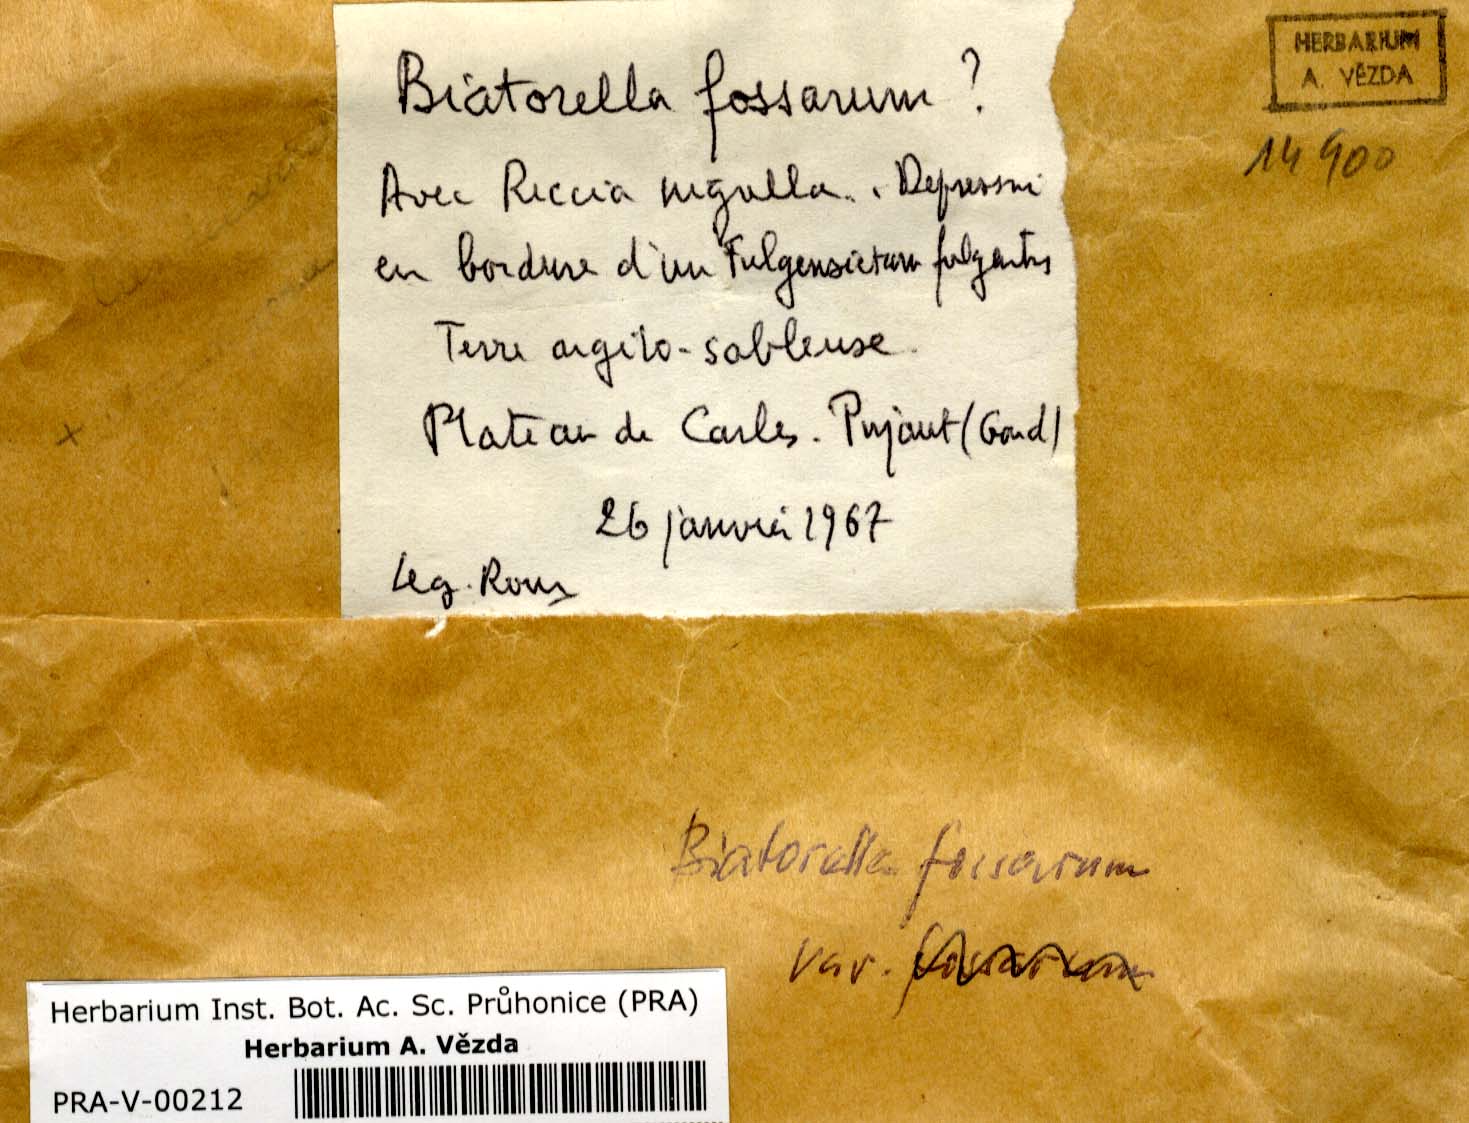 HERBARIUM
A. VĚZDA
14 900
Biatorella fossarum ?
Avec Riccia nigrella. Depression
en bordure d'un Fulgensietum fulgentis
Terre argilo-sableuse.
Plateau de Carles. Pujaut (Gard)
26 janvier 1967
Leg. Roux
Biatorella fossarum
var. fossarum
Herbarium Inst. Bot. Ac. Sc. Průhonice (PRA)
Herbarium A. Vězda
PRA-V-00212